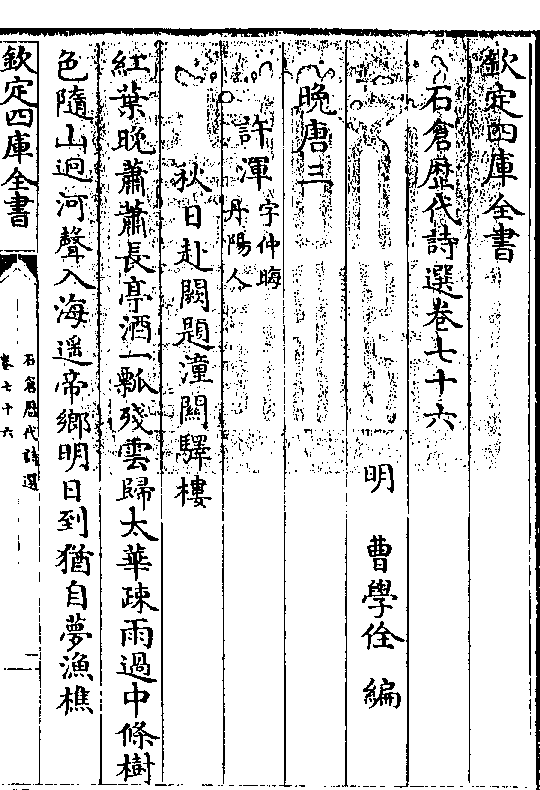 欽定四庫全書
石倉歴代詩選卷七十六
明　曹學佺　編
晚唐三
許渾字仲晦
丹陽人
秋日赴闕題潼關驛樓
紅葉晚蕭蕭長亭酒一瓢殘雲歸太華疎雨過中條樹
色隨山迥河聲入海遥帝鄉明日到猶自夢漁樵
欽定四庫全書
石倉歴代詩選
卷七十六
一